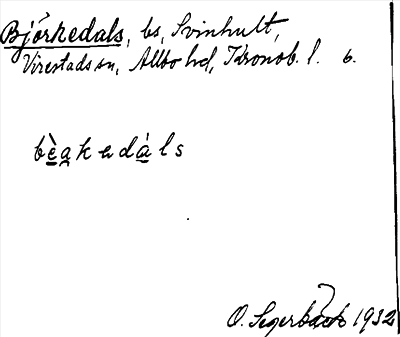 Björkedals, bs, Svinhult,
Virestads sn, Allbo hd, Kronob. l. 6.
bèakedàls
O. Segerbäck 1932